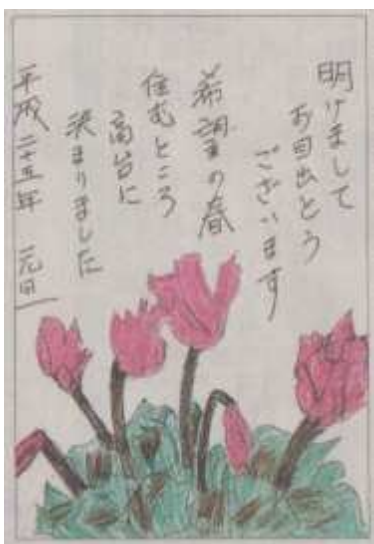 明けまして
お目出とう
ございます
希望の春
住むところ
高台に
決まりました
平成二十五年 元旦